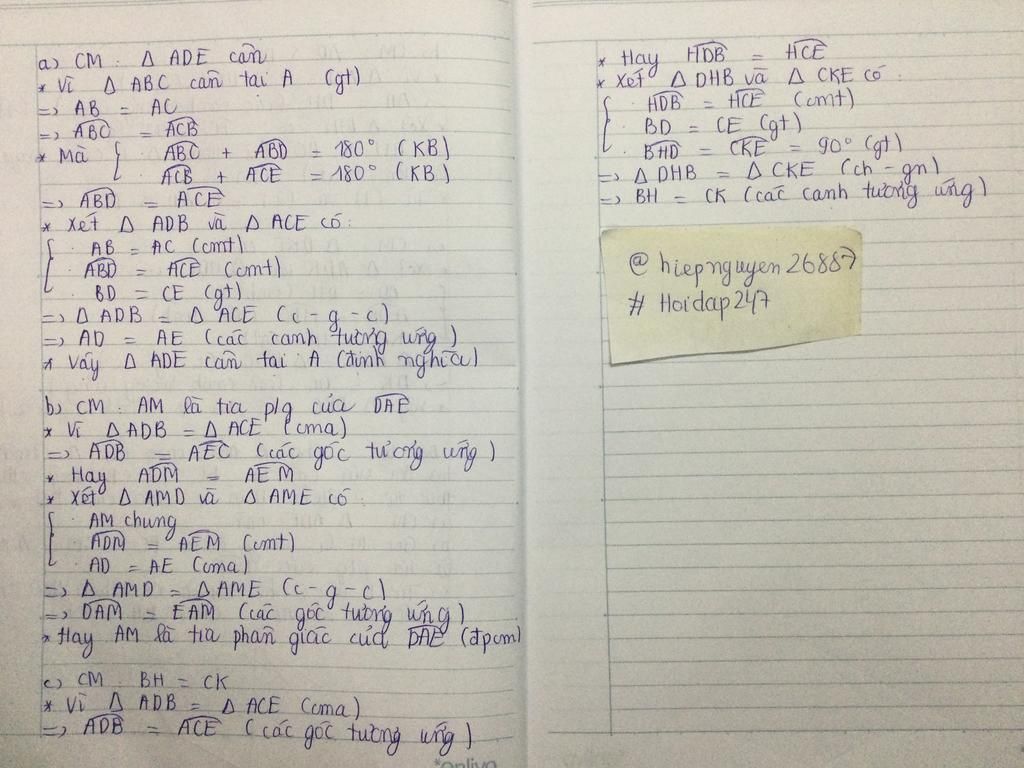 a) CM : Δ ADE cân
* Vì Δ ABC cân tại A (gt)
=> AB = AC
=> ABC = ACB
* Mà { ABC + ABD = 180° (KB)
ACB + ACE = 180° (KB)
=> ABD = ACE
* Xét Δ ADB và Δ ACE có:
{ · AB = AC (cmt)
· ABD = ACE (cmt)
· BD = CE (gt)
=> Δ ADB = Δ ACE (c-g-c)
=> AD = AE (các cạnh tương ứng)
* Vậy Δ ADE cân tại A (định nghĩa)
b) CM : AM là tia p/g của DAE
* Vì Δ ADB = Δ ACE (cma)
=> ADB = AEC (các góc tương ứng)
* Hay ADM = AEM
* Xét Δ AMD và Δ AME có
{ · AM chung
· ADM = AEM (cmt)
· AD = AE (cma)
=> Δ AMD = Δ AME (c-g-c)
=> DAM = EAM (các góc tương ứng)
* Hay AM là tia phân giác của DAE (đpcm)
c) CM : BH = CK
* Vì Δ ADB = Δ ACE (cma)
=> ADB = ACE (các góc tương ứng)
* Hay HDB = HCE
* Xét Δ DHB và Δ CKE có :
{ · HDB = HCE (cmt)
· BD = CE (gt)
· BHD = CKE = 90° (gt)
=> Δ DHB = Δ CKE (ch-gn)
=> BH = CK (các cạnh tương ứng)
@ hiepnguyen26887
# Hoidap247